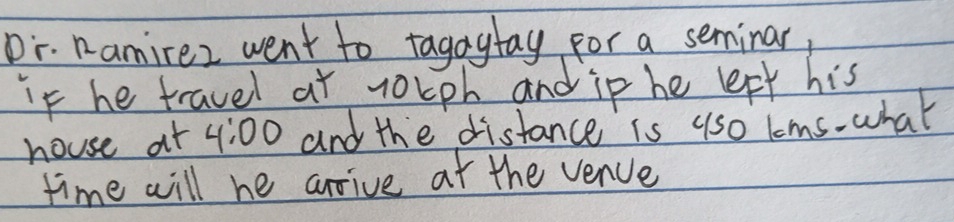 Dr. Ramirez went to Tagaytay for a seminar,
if he travel at 70kph and if he left his
house at 4:00 and the distance is 450 kms. what
time will he arrive at the venue